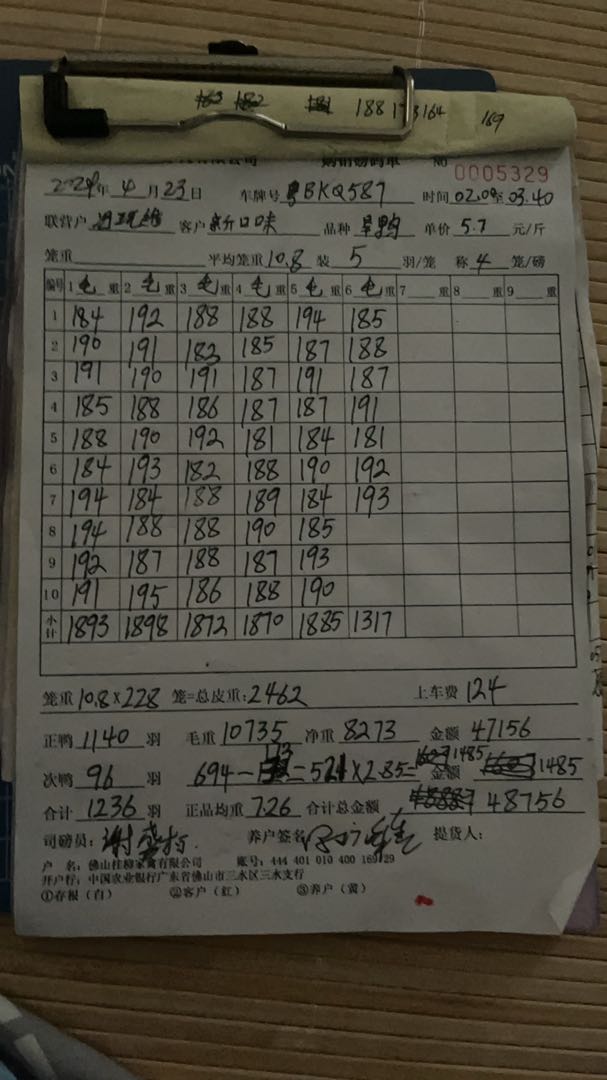 188 173 164 169
购销磅码单 NO 0005329
2024年4月23日 车牌号 粤BKQ587 时间02.00至03.40
联营户 客户 新口味 品种 旱鸭 单价 5.7 元/斤
笼重 平均笼重10.8 装 5 羽/笼 称 4 笼/磅
编号 1 毛 重 2 毛 重 3 毛 重 4 毛 重 5 毛 重 6 毛 重 7 重 8 重 9 重
1 184 192 188 188 194 185
2 190 191 182 185 187 188
3 191 190 191 187 191 187
4 185 188 186 187 187 191
5 188 190 192 181 184 181
6 184 193 182 188 190 192
7 194 184 188 189 184 193
8 194 188 188 190 185
9 192 187 188 187 193
10 191 195 186 188 190
小计 1893 1898 1872 1870 1885 1317
笼重 10.8×228 笼=总皮重:2462 上车费 124
正鸭 1140 羽 毛重 10735 净重 8273 金额 47156
次鸭 96 羽 694-173=521×2.85=1485 金额 1485
合计 1236 羽 正品均重 7.26 合计总金额 48756
司磅员: 养户签名 提货人:
户 名:佛山桂柳家禽有限公司 账号:444 401 010 400 169 29
开户行:中国农业银行广东省佛山市三水区三水支行
①存根(白) ②客户(红) ③养户(黄)